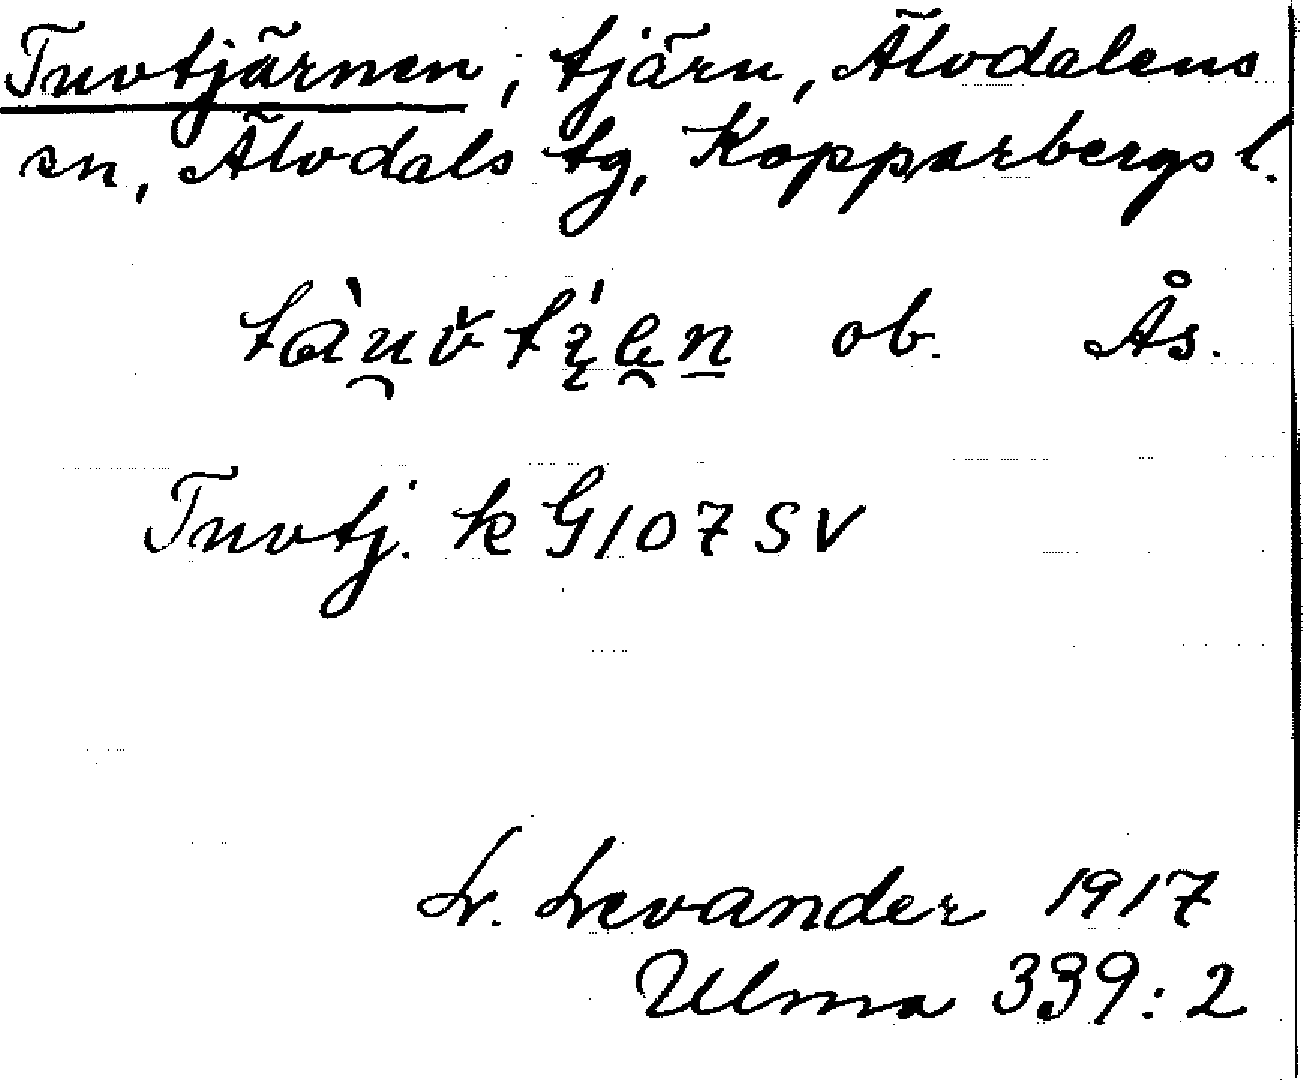 Tuvtjärnen, tjärn, Älvdalens
sn, Älvdals tg, Kopparbergs l.
ob. Ås.
Tuvtj. k G107 SV
L. Levander 1917
Ulma 339:2